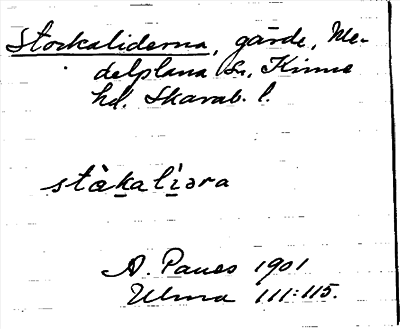 Stockaliderna, gärde, Me-
delplana Sn, Kinne
hd. Skarab. l.
stàkalìəra
A. Paues 1901
Ulma 111:115.